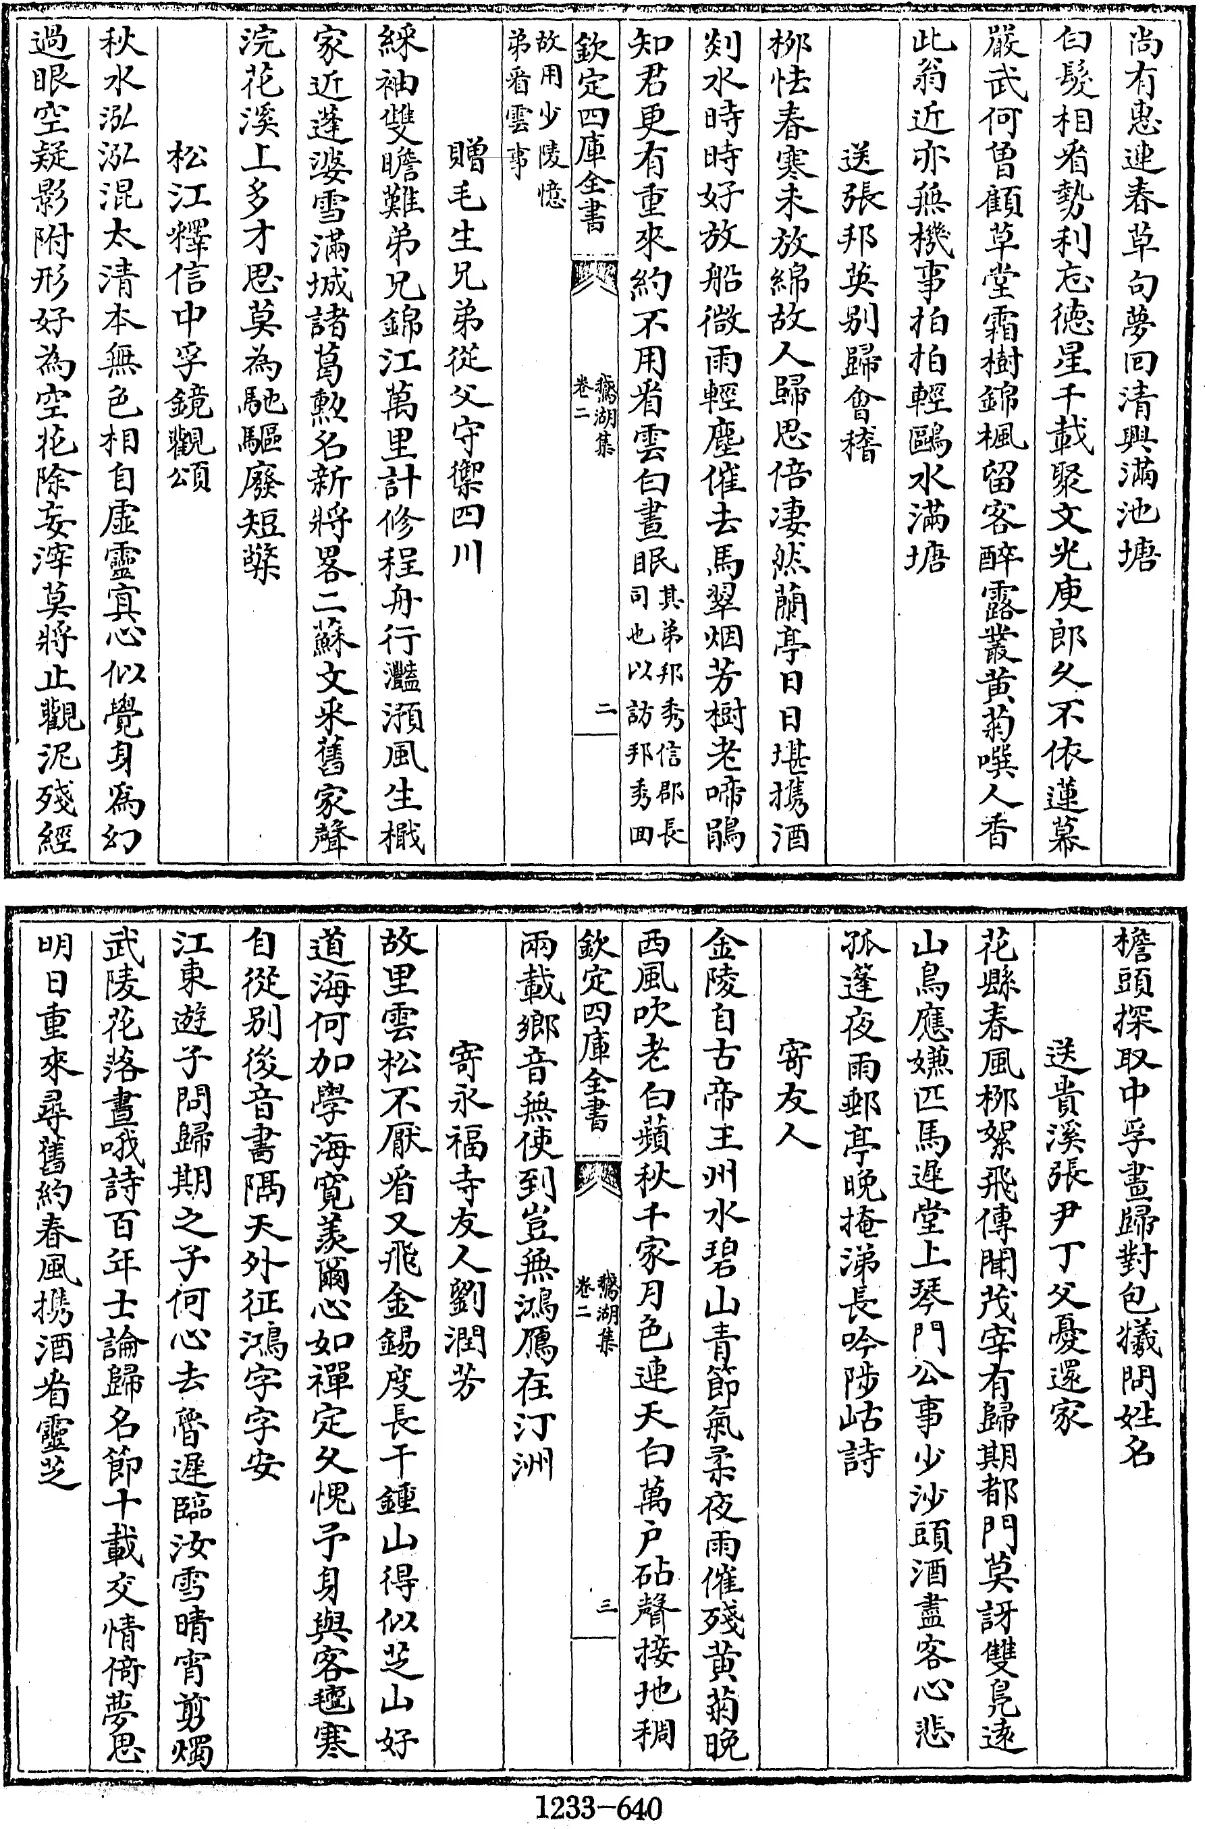 尚有惠連春草句夢回清興滿池塘
白髮相看勢利忘德星千載聚文光庾郎久不依蓮幕
嚴武何曽顧草堂霜樹錦楓留客醉露叢黄菊噀人香
此翁近亦無機事拍拍輕鷗水滿塘
送張邦英别歸會稽
栁怯春寒未放綿故人歸思倍凄然蘭亭日日堪携酒
剡水時時好放船微雨輕塵催去馬翠烟芳樹老啼鵑
知君更有重來約不用看雲白晝眠其弟邦秀信郡長
司也以訪邦秀囬
欽定四庫全書
鵞湖集
卷二
二
故用少陵憶
弟看雲事
贈毛生兄弟從父守禦四川
綵袖雙瞻難弟兄錦江萬里計修程舟行灩澦風生檝
家近蓬婆雪滿城諸葛勲名新將畧二蘇文采舊家聲
浣花溪上多才思莫為馳驅廢短檠
松江釋信中孚鏡觀頌
秋水泓泓混太清本無色相自虛靈寘心似覺身為幻
過眼空疑影附形好為空花除妄滓莫將止觀泥殘經
檐頭探取中孚畫歸對包犧問姓名
送貴溪張尹丁父憂還家
花縣春風栁絮飛傳聞茂宰有歸期都門莫訝雙鳬逺
山鳥應嫌匹馬遲堂上琴門公事少沙頭酒盡客心悲
孤蓬夜雨郵亭晚掩涕長吟陟岵詩
寄友人
金陵自古帝王州水碧山青節氣柔夜雨催殘黄菊晚
西風吹老白蘋秋千家月色連天白萬户砧聲接地稠
欽定四庫全書
鵞湖集
卷二
三
兩載鄉音無使到豈無鴻鴈在汀洲
寄永福寺友人劉潤芳
故里雲松不厭看又飛金錫度長干鍾山得似芝山好
道海何加學海寛羡爾心如禪定久愧予身與客氊寒
自從别後音書隔天外征鴻字字安
江東遊子問歸期之子何心去魯遲臨汝雪晴宵剪燭
武陵花落晝哦詩百年士論歸名節十載交情倚夢思
明日重來尋舊約春風携酒看靈芝
1233-640